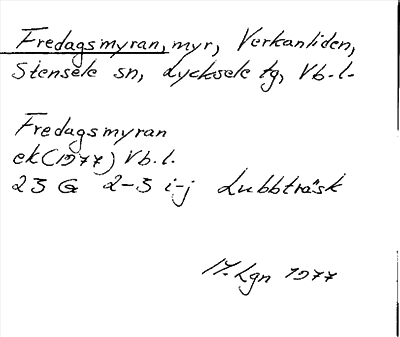 Fredagsmyran, myr, Verkanliden,
Stensele sn, Lycksele tg, Vb. l.
Fredagsmyran
ek (1977) Vb. l.
23 G 2-3 i-j Lubbträsk
M. Lgn 1977